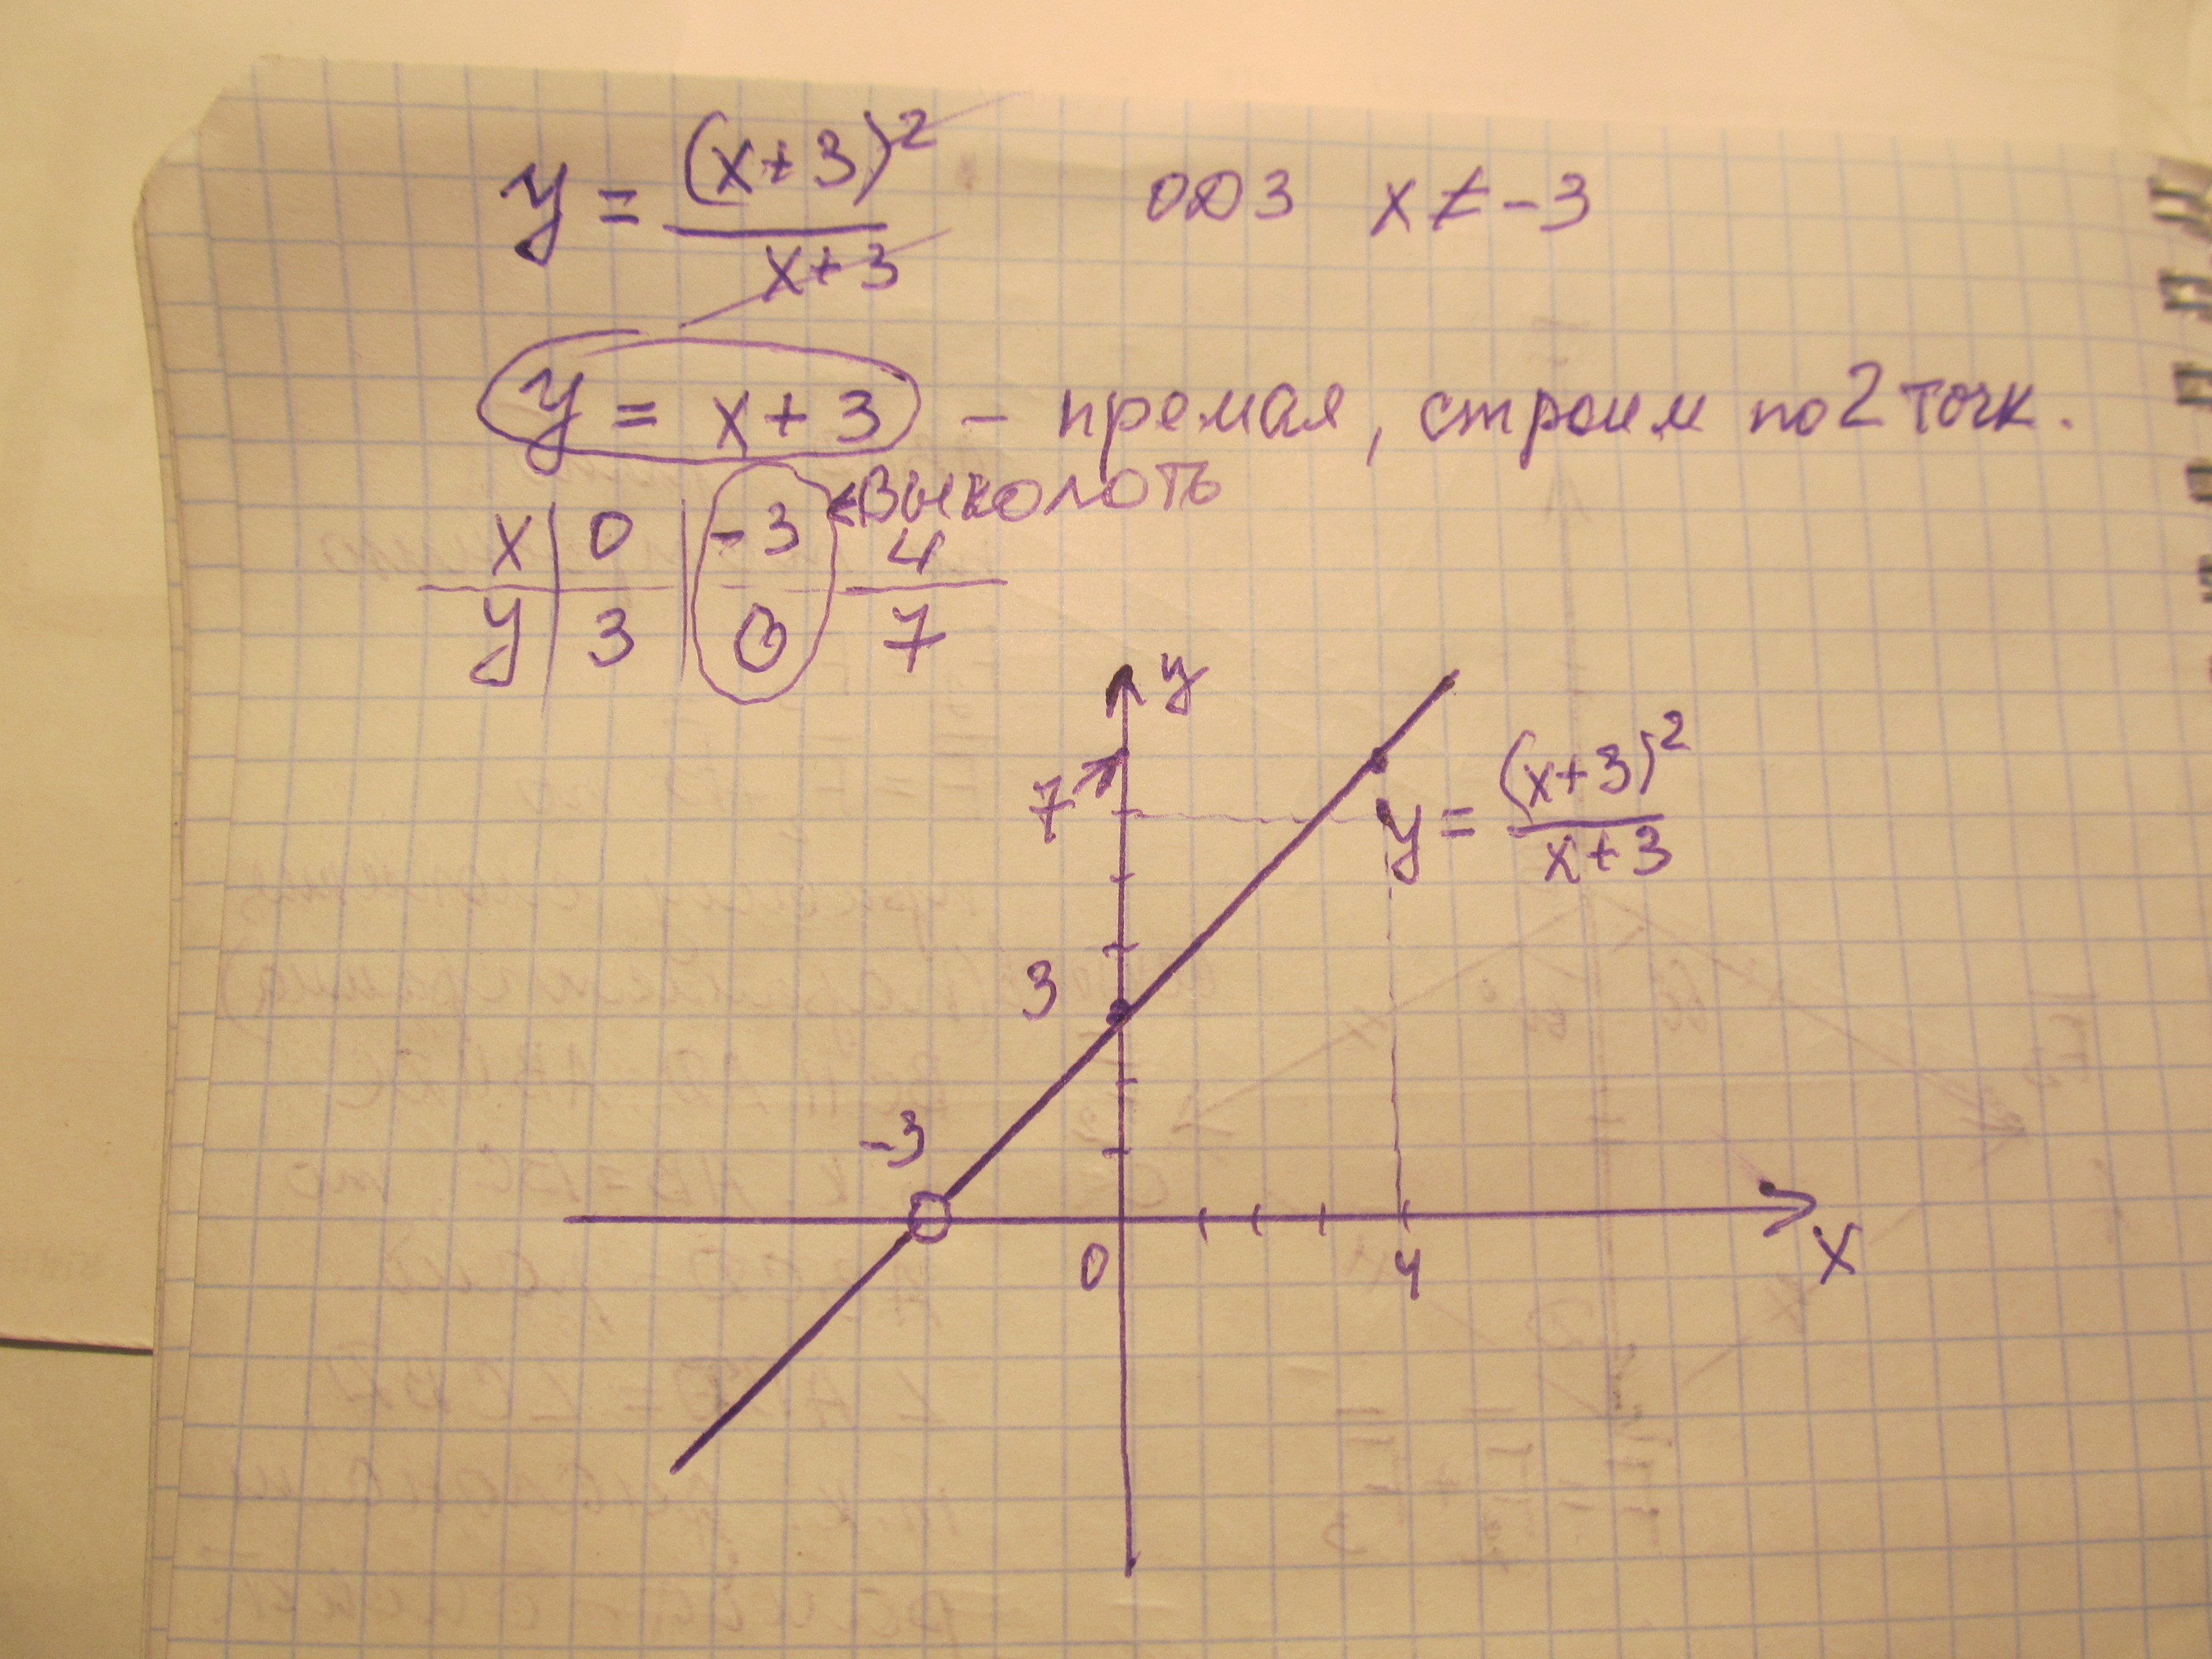 y = (x+3)² / x+3 ОДЗ x ≠ -3
y = x+3 - премая, строим по 2 точк.
← Выколоть
x | 0 | -3 | 4
y | 3 | 0 | 7
y
7
y = (x+3)² / x+3
3
-3
0 4 x